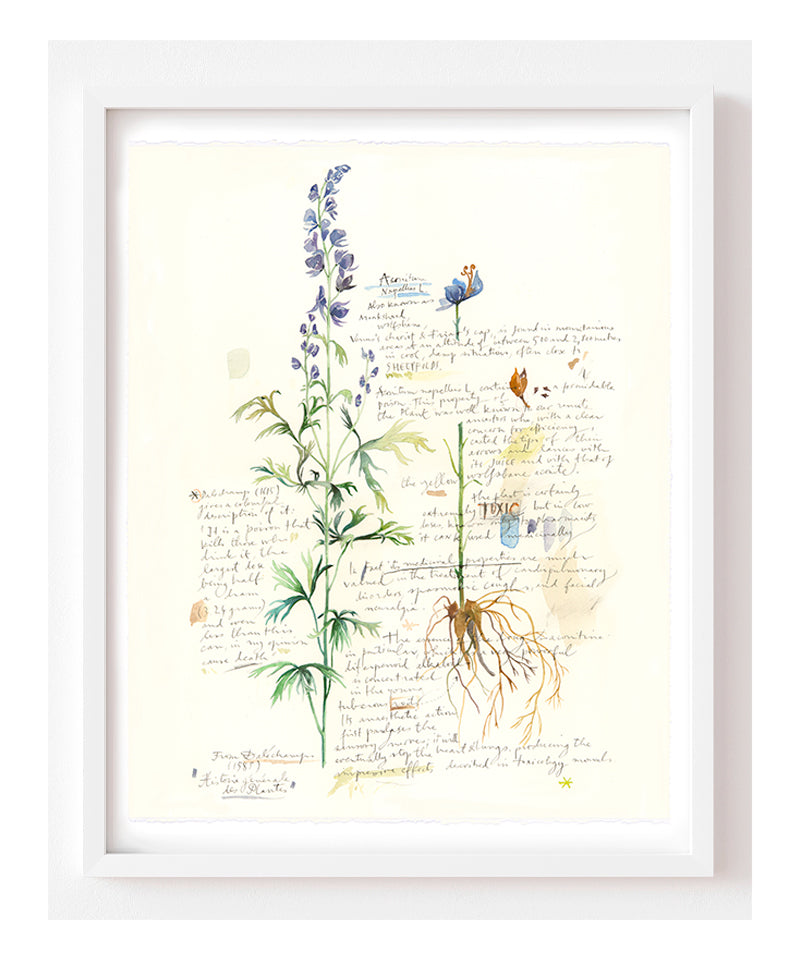 Aconitum
Napellus L
Also known as
Monkshood,
wolfsbane,
Venus' chariot & Friar's cap, is found in mountainous
areas at an altitude of between 500 and 2,500 metres
in cool, damp situations, often close to
SHEEPFOLDS.
Aconitum napellus L, contains a formidable
poison. This property of
the plant was well known to our remote
ancestors who with a clear
concern for efficiency,
coated the tips of their
arrows and lances with
its juice and with that of
the yellow wolfsbane aconite.
the plant is certainly
extremely TOXIC, but in low
doses, known
it can be used medicinally
In fact its medicinal properties are
valued in the treatment of cardiopulmonary
disorders, spasmodic coughs, and facial
neuralgia.
The
in particular, which powerful
diterpenoid alkaloid
is concentrated
in the young
tuberous roots
Its anaesthetic action
first paralyses the
sensory nerves; it will
eventually stop the heart & lungs, producing the
impressive effects described in toxicology manuals
*Dalechamp (1615)
gives a colourful
description of it:
"It is a poison that
kills those who
drink it, the
largest dose
being half
Dram
(3.24 grams)
and even
less than this
can, in my opinion
cause death
From Dalechamps
Histoire générale
des Plantes